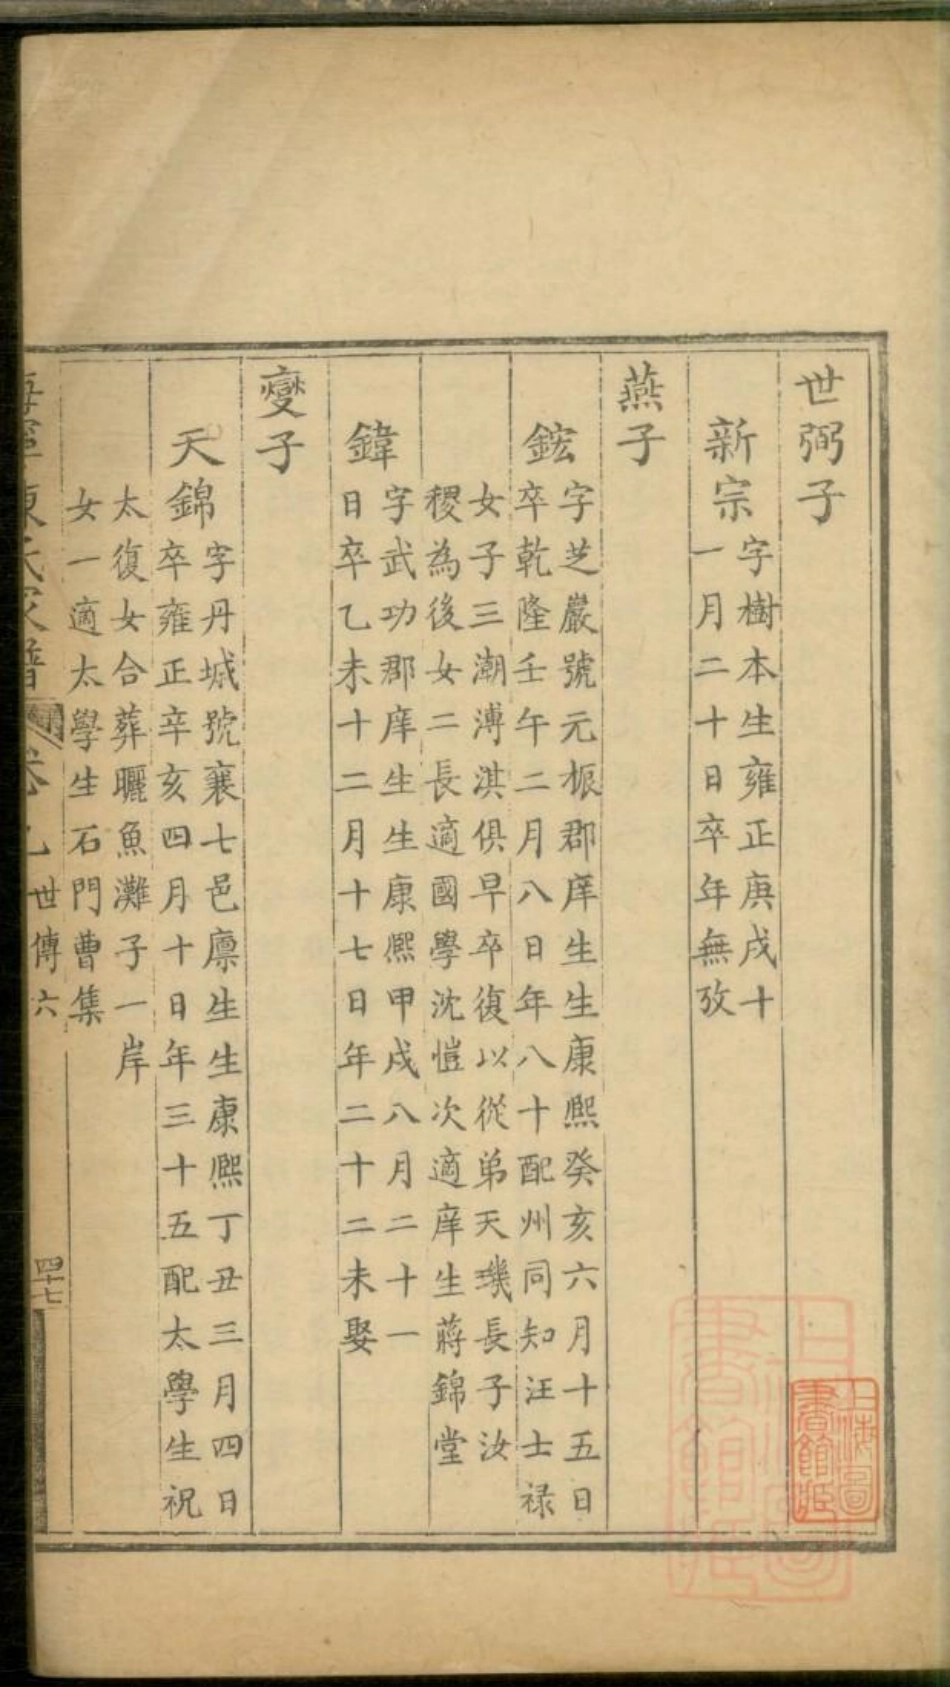 世弼子
新宗
字樹本生雍正庚戌十
一月二十日卒年無攷
燕子
鋐
字芝巖號元振郡庠生生康熙癸亥六月十五日
卒乾隆壬午二月八日年八十配州同知汪士禄
女子三潮溥淇俱早卒復以從弟天璣長子汝
稷為後女二長適國學沈愷次適庠生蔣錦堂
鍏
字武功郡庠生生康熙甲戌八月二十一
日卒乙未十二月十七日年二十二未娶
燮子
天錦
字丹城號襄七邑廩生生康熙丁丑三月四日
卒雍正辛亥四月十日年三十五配太學生祝
太復女合葬曬魚灘子一岸
女一適太學生石門曹集
世傳六
四十七
上海圖
書館藏